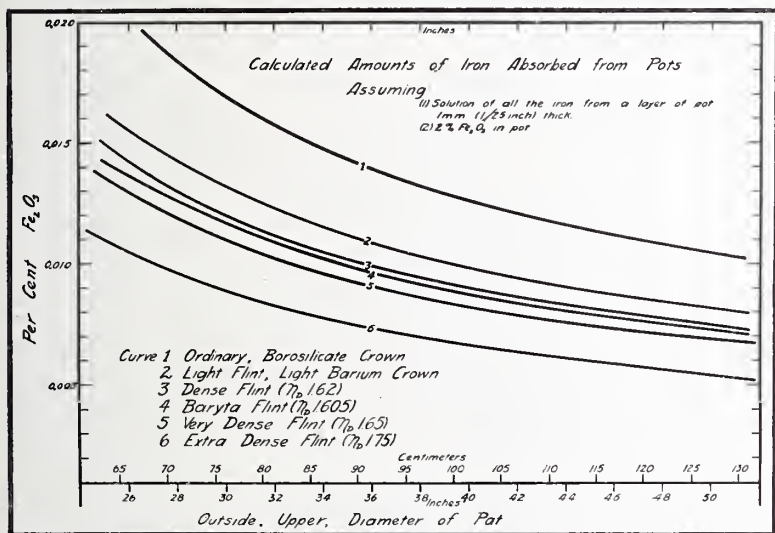 0,020
Inches
Calculated Amounts of Iron Absorbed from Pots
Assuming
(1) Solution of all the iron from a layer of pot
1mm (1/25 inch) thick.
(2) 2% Fe₂O₃ in pot
0,015
1
Per Cent Fe₂O₃
2
0,010
3
4
5
6
Curve 1 Ordinary, Borosilicate Crown
2 Light Flint, Light Barium Crown
3 Dense Flint (η_D 1.62)
4 Baryta Flint (η_D 1.605)
5 Very Dense Flint (η_D 1.65)
6 Extra Dense Flint (η_D 1.75)
0,005
Centimeters
65 70 75 80 85 90 95 100 105 110 115 120 125 130
26 28 30 32 34 36 38 Inches 40 42 44 46 48 50
Outside, Upper, Diameter of Pot